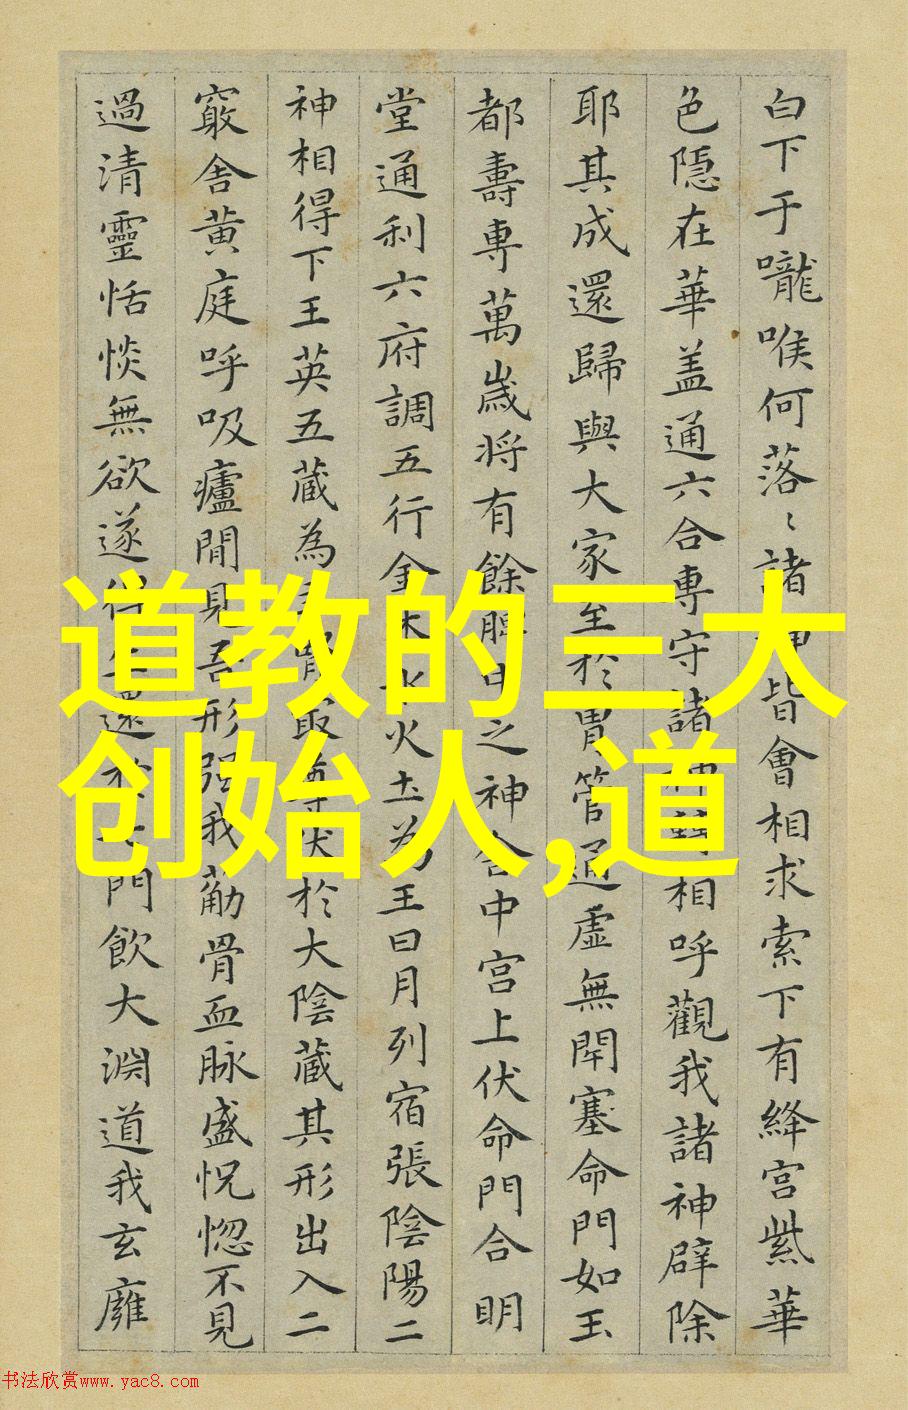 白下于嚨喉何落〻諸神皆會相求索下有絳宫紫華
色隱在華盖通六合専守諸神轉相呼觀我諸神辟除
耶其成還歸與大家至於胃管通虛無閇塞命門如玉
都壽専萬歳将有餘脾中之神舍中宫上伏命門合明
堂通利六府調五行金木水火土为王日月列宿張陰陽二
神相得下王英五蔵為腎最尊伏於大陰蔵其形出入二
竅舍黄庭呼吸廬間見吾形强我筋骨血脉盛怳惚不見
過清靈恬惔無欲遂得還於門飲大淵道我玄廱
道教的三大
创始人,道
书法欣赏www.yac8.com